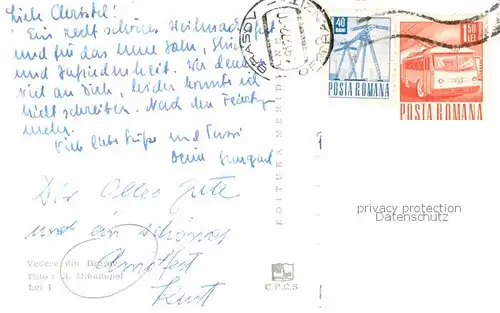 Liebe Christel!
Ein recht schönes Weihnachtsfest
und für das neue Jahr, Glück
und Zufriedenheit. Wir denken
viel an Dich, leider konnte ich
nicht schreiben. Nach den Feiertagen
mehr.
Viele liebe Grüße und Bussi
Deine
Dir Alles Gute
und ein schönes
Kurt
Vedere din Brașov
Foto : A. Mihailopol
Lei 1
EDITURA MERIDIANE
C.P.C.S.
BRASOV
40
BANI
POSTA ROMANA
1,50
LEI
POSTA ROMANA
privacy protection
Datenschutz